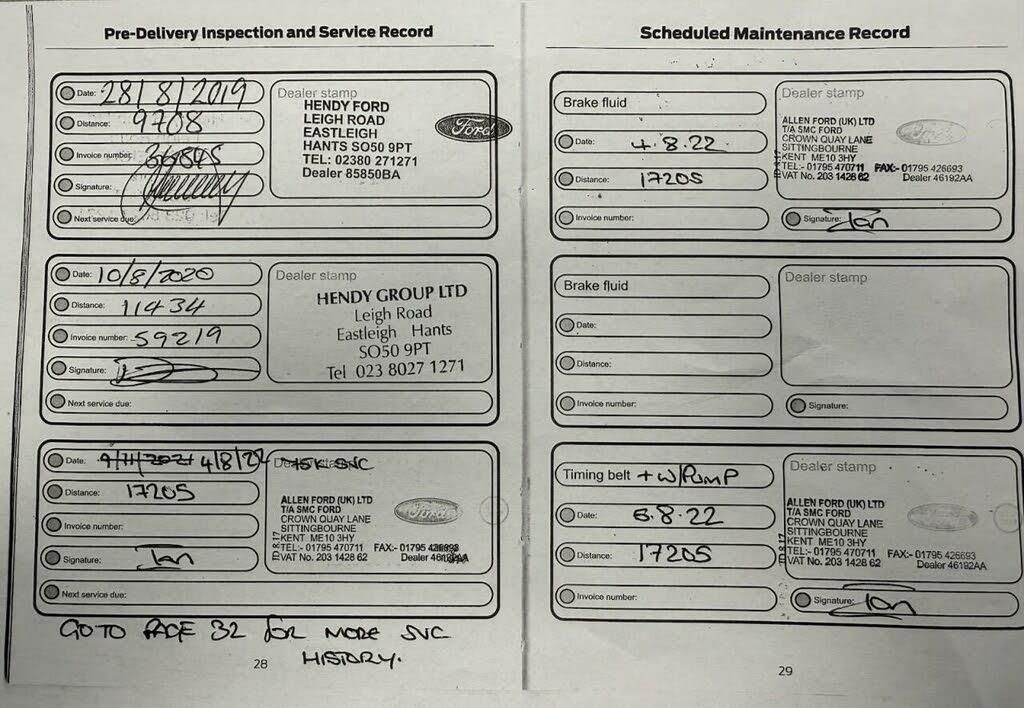 Pre-Delivery Inspection and Service Record
Date: 28/8/2019
Distance: 9708
Invoice number: 36845
Signature:
Next service due:
Dealer stamp
HENDY FORD
LEIGH ROAD
EASTLEIGH
HANTS SO50 9PT
TEL: 02380 271271
Dealer 85850BA
Ford
Date: 10/8/2020
Distance: 11434
Invoice number: 59219
Signature:
Next service due:
Dealer stamp
HENDY GROUP LTD
Leigh Road
Eastleigh Hants
SO50 9PT
Tel 023 8027 1271
Date: 9/11/2021 4/8/22 75K SVC
Distance: 17205
Invoice number:
Signature: Ian
Next service due:
Dealer stamp
ALLEN FORD (UK) LTD
T/A SMC FORD
CROWN QUAY LANE
SITTINGBOURNE
KENT ME10 3HY
TEL:- 01795 470711 FAX:- 01795 426693
VAT No. 203 1428 62 Dealer 46192AA
ID 8.17
Ford
GO TO PAGE 32 FOR MORE SVC
HISTORY.
28
Scheduled Maintenance Record
Brake fluid
Date: 4.8.22
Distance: 17205
Invoice number:
Dealer stamp
ALLEN FORD (UK) LTD
T/A SMC FORD
CROWN QUAY LANE
SITTINGBOURNE
KENT ME10 3HY
TEL:- 01795 470711 FAX:- 01795 426693
VAT No. 203 1428 62 Dealer 46192AA
ID 8.17
Ford
Signature: Ian
Brake fluid
Date:
Distance:
Invoice number:
Dealer stamp
Signature:
Timing belt + W/PUMP
Date: 8.8.22
Distance: 17205
Invoice number:
Dealer stamp
ALLEN FORD (UK) LTD
T/A SMC FORD
CROWN QUAY LANE
SITTINGBOURNE
KENT ME10 3HY
TEL:- 01795 470711 FAX:- 01795 426693
VAT No. 203 1428 62 Dealer 46192AA
ID 8.17
Ford
Signature: Ian
29